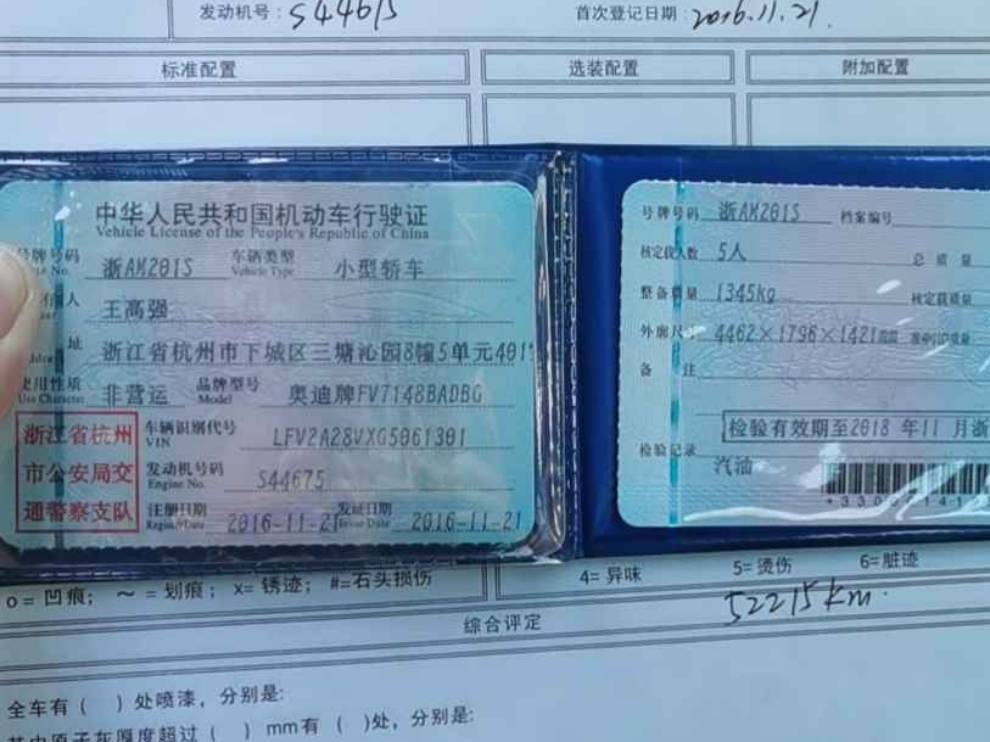 发动机号: S44675 首次登记日期: 2016.11.21.
标准配置 选装配置 附加配置
中华人民共和国机动车行驶证
Vehicle License of the People's Republic of China
号牌号码 浙AM201S 车辆类型 Vehicle Type 小型轿车
人 王高强
址 浙江省杭州市下城区三塘沁园8幢5单元401
使用性质 Use Character 非营运 品牌型号 Model 奥迪牌FV7148BADBG
浙江省杭州
市公安局交
通警察支队
车辆识别代号 VIN LFV2A28VXG5061301
发动机号码 Engine No. S44675
注册日期 2016-11-21 发证日期 Issue Date 2016-11-21
号牌号码 浙AM201S 档案编号
核定载人数 5人 总质量
整备质量 1345kg 核定载质量
外廓尺寸 4462×1796×1421
备注
检验有效期至2018年11月浙
检验记录
汽油
o= 凹痕; ~ = 划痕; x= 锈迹; #=石头损伤
4= 异味 5= 烫伤 6=脏迹
综合评定 52215km.
全车有( )处喷漆, 分别是:
其中原子灰厚度超过( )mm有( )处, 分别是: